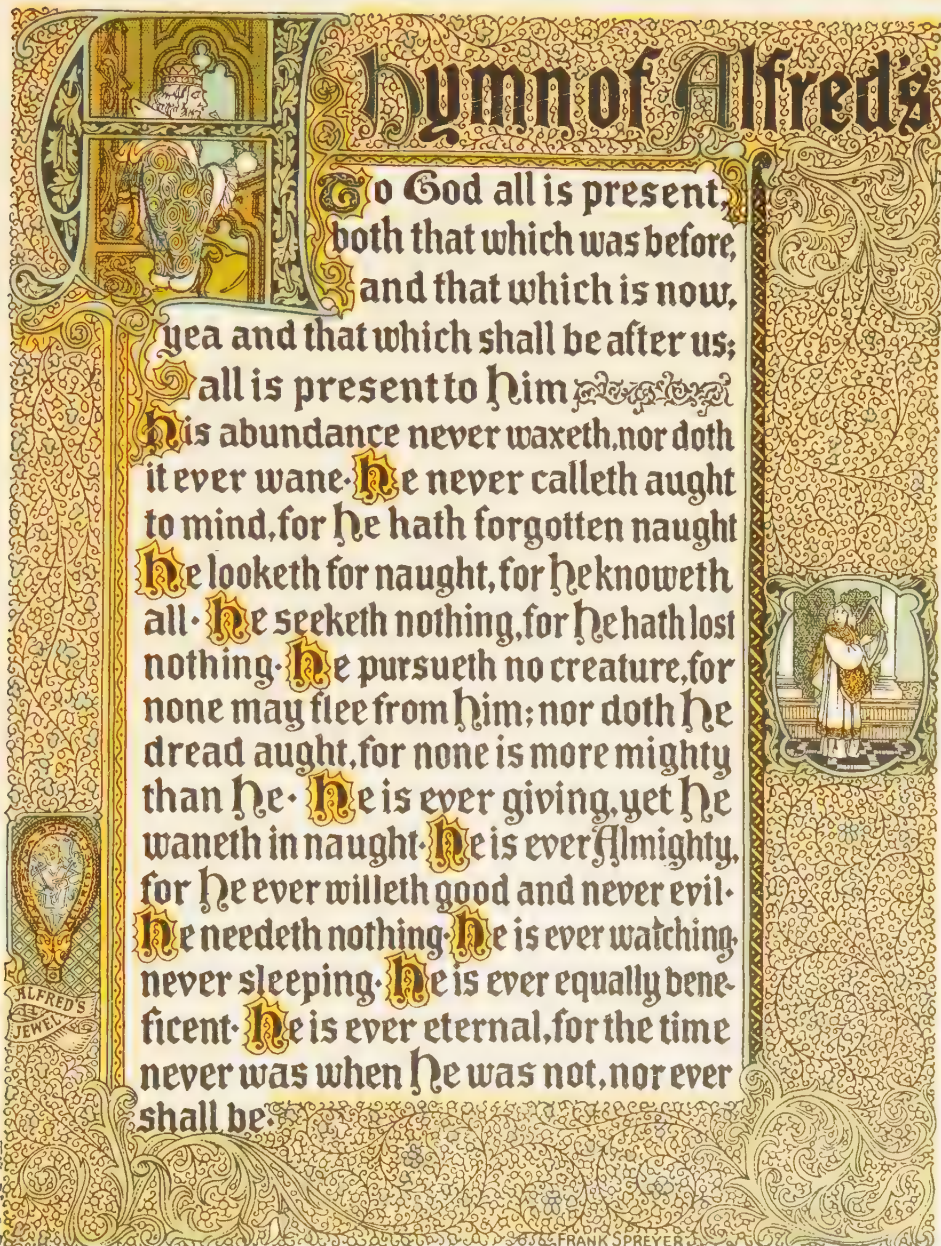 A Hymn of Alfred's
To God all is present,
both that which was before,
and that which is now,
yea and that which shall be after us;
all is present to him
His abundance never waxeth, nor doth
it ever wane· He never calleth aught
to mind, for he hath forgotten naught
He looketh for naught, for he knoweth
all· He seeketh nothing, for he hath lost
nothing· He pursueth no creature, for
none may flee from him; nor doth he
dread aught, for none is more mighty
than he· He is ever giving, yet he
waneth in naught· He is ever Almighty,
for he ever willeth good and never evil·
He needeth nothing· He is ever watching,
never sleeping· He is ever equally bene-
ficent· He is ever eternal, for the time
never was when he was not, nor ever
shall be·
ALFRED'S
JEWEL
FRANK SPREYER